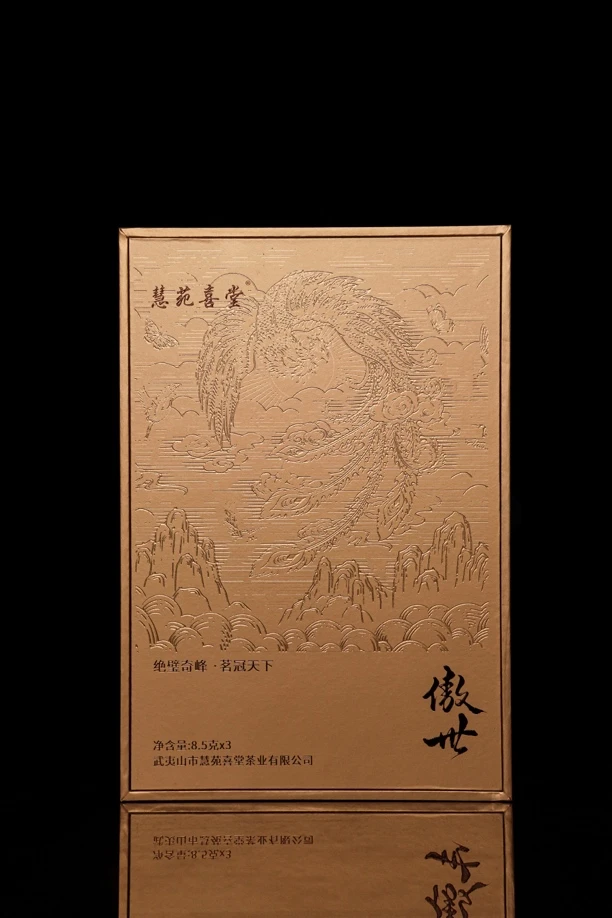 慧苑喜堂®
绝壁奇峰·茗冠天下
傲世
净含量:8.5克x3
武夷山市慧苑喜堂茶业有限公司